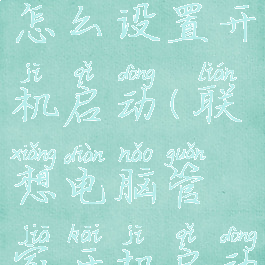 怎么设置开
jī qǐ dòng lián
机启动(联
xiǎng diàn nǎo guǎn
想电脑管
jiā kāi jī qǐ dòng